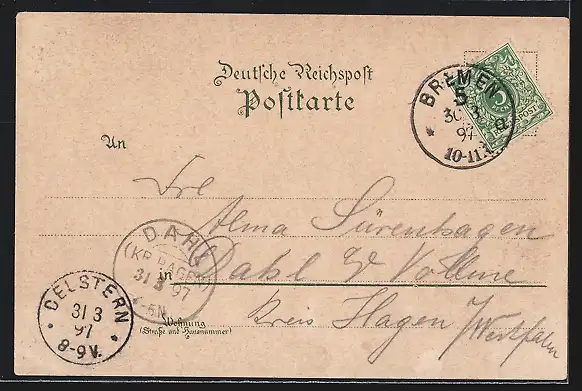 Deutsche Reichspost
Postkarte
BREMEN
5 a
30 3
97
10-11
An
Frl
Alma Sürenhagen
in Dahl a/ Volme
Kreis Hagen
i/Westfalen
DAHL
(KR. HAGEN)
31 3 97
-5N
OELSTERN
31 3
97
8-9V.
Wohnung
(Straße und Hausnummer)